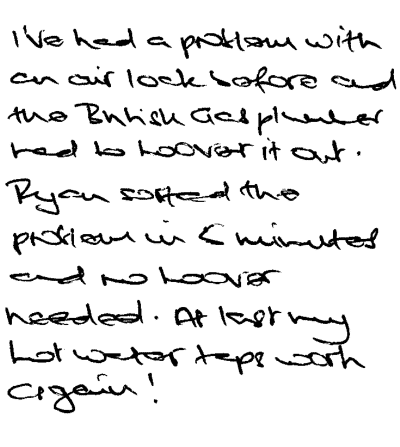 I've had a problem with
an air lock before and
the British Gas plumber
had to hoover it out.
Ryan sorted the
problem in 5 minutes
and no hoover
needed. At last my
hot water taps work
again!